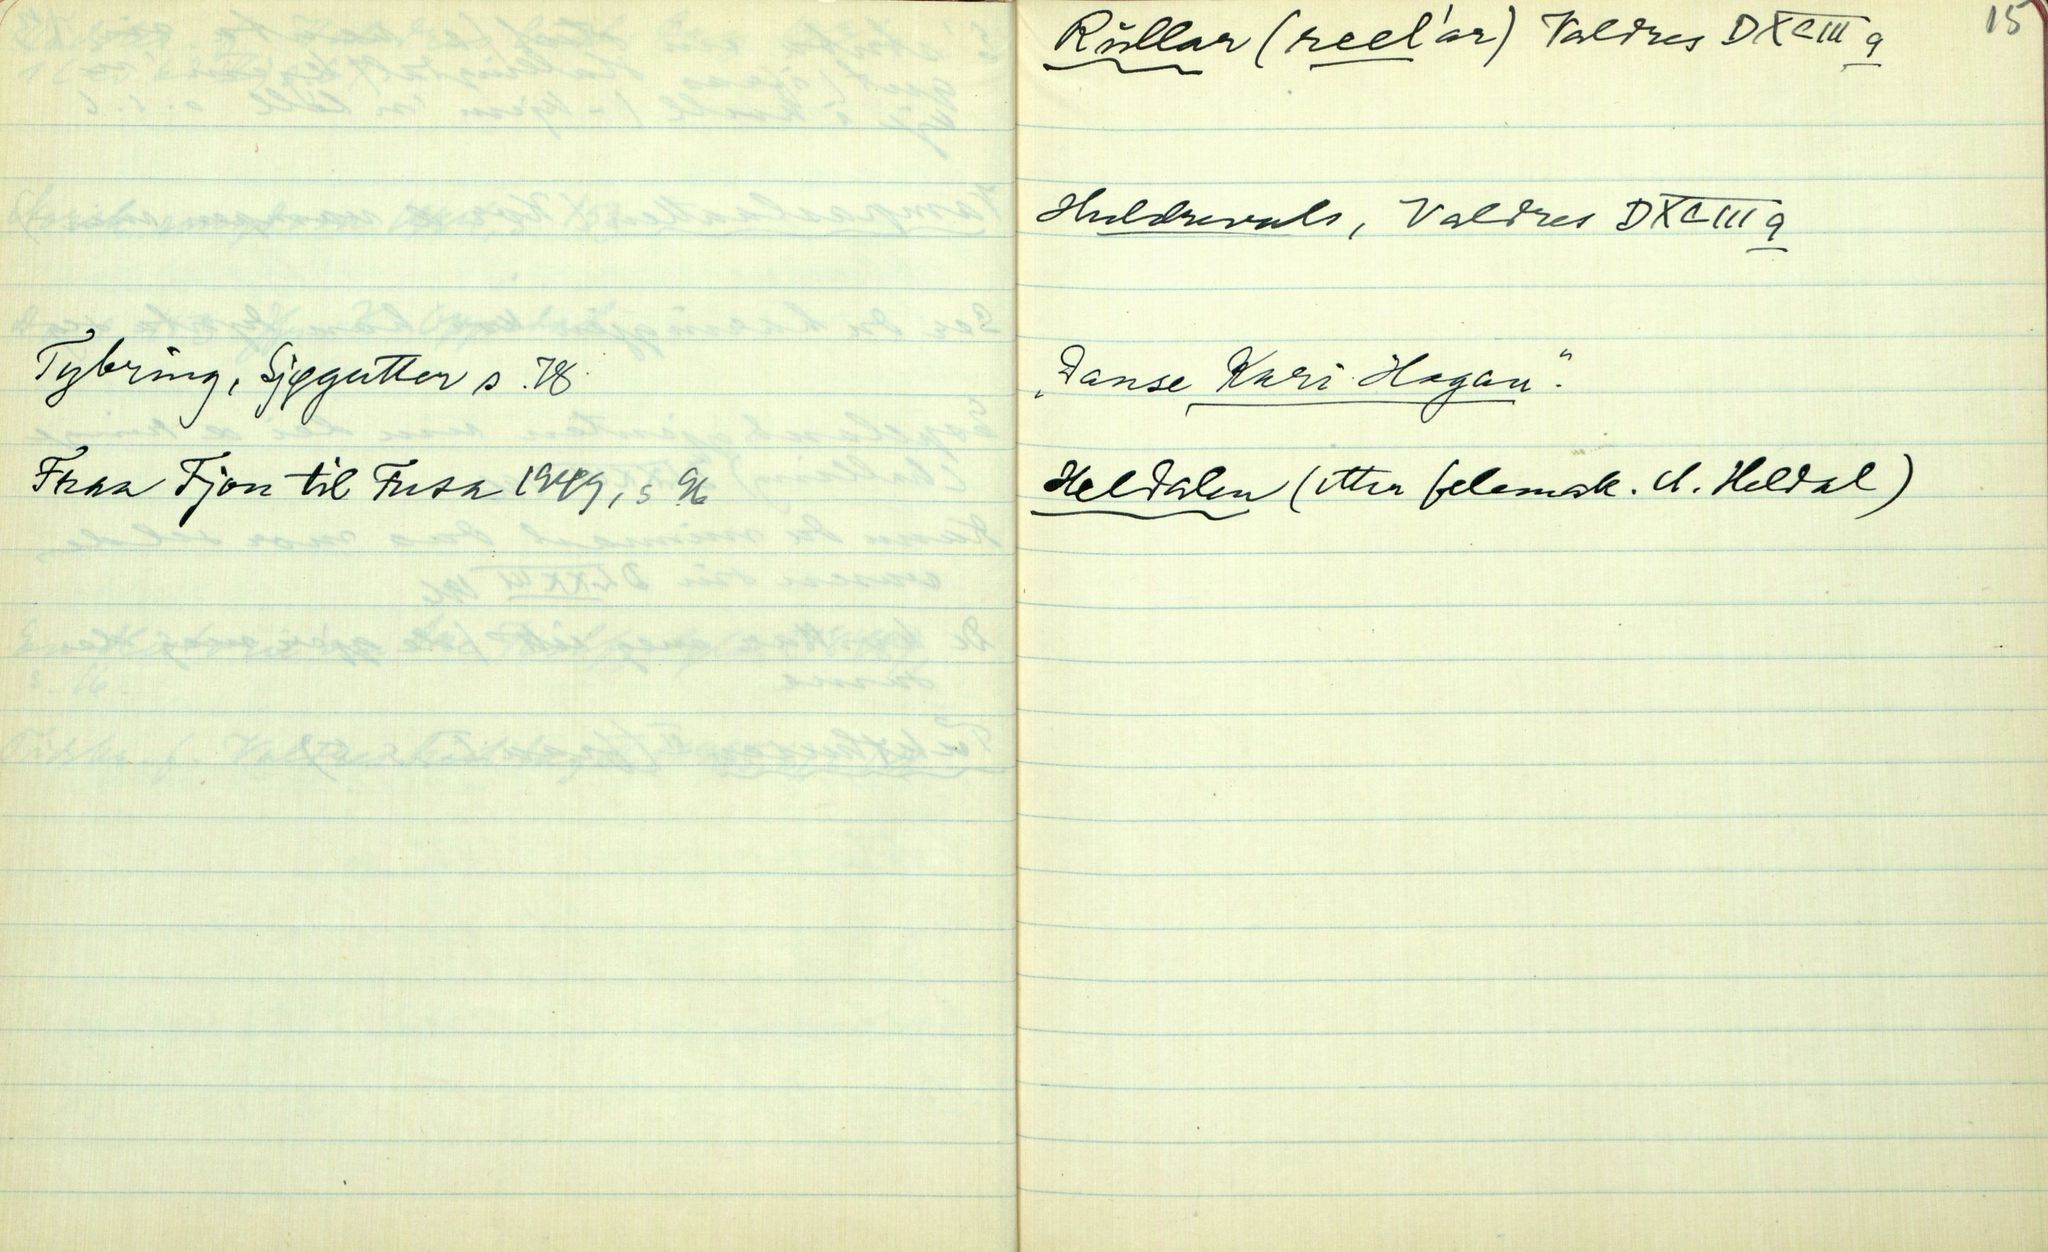 Tybring, Sjøgutter s. 78.
Fraa Fjon til Fusa 1949, s 96
15
Rüllar (reel'ar) Valdres DXCIII 9
Huldrevals, Valdres DXCIII 9
„Danse Kari Hagan".
Heldalen (etter felemak. A. Heldal)